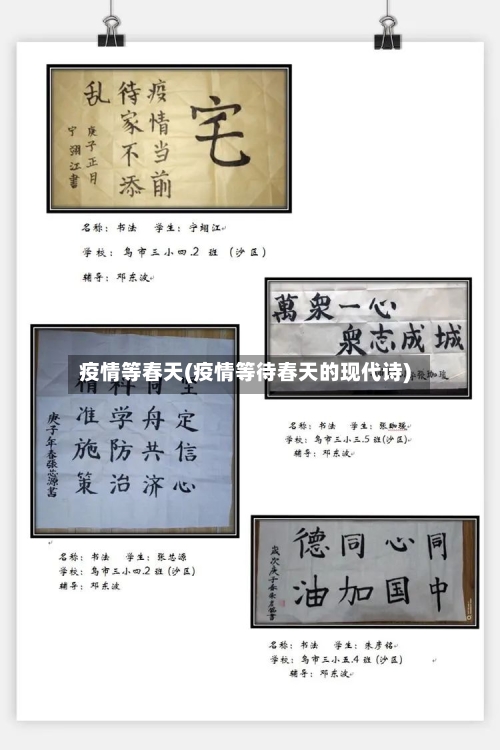 宅
疫情当前
待家不添
乱
庚子正月
宁翊江書
名称：书法 学生：宁翊江
学校：乌市三小四.2 班 (沙区)
辅导：邓东波
萬衆一心
衆志成城
名称：书法 学生：张珈瑞
学校：乌市三小三.5 班(沙区)
辅导：邓东波
疫情等春天(疫情等待春天的现代诗)
坚定信心
同舟共济
科学防治
精准施策
庚子年春張源書
名称：书法 学生：张源
学校：乌市三小四.2 班 (沙区)
辅导：邓东波
同心同德
中国加油
歲次庚子春
名称：书法 学生：朱彦铭
学校：乌市三小五.4 班 (沙区)
辅导：邓东波